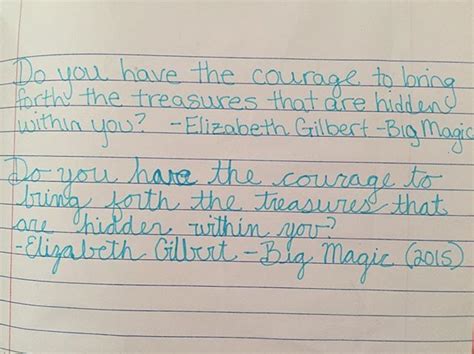 Do you have the courage to bring
forth the treasures that are hidden
within you? -Elizabeth Gilbert-Big Magic
Do you have the courage to
bring forth the treasures that
are hidden within you?
-Elizabeth Gilbert-Big Magic (2015)